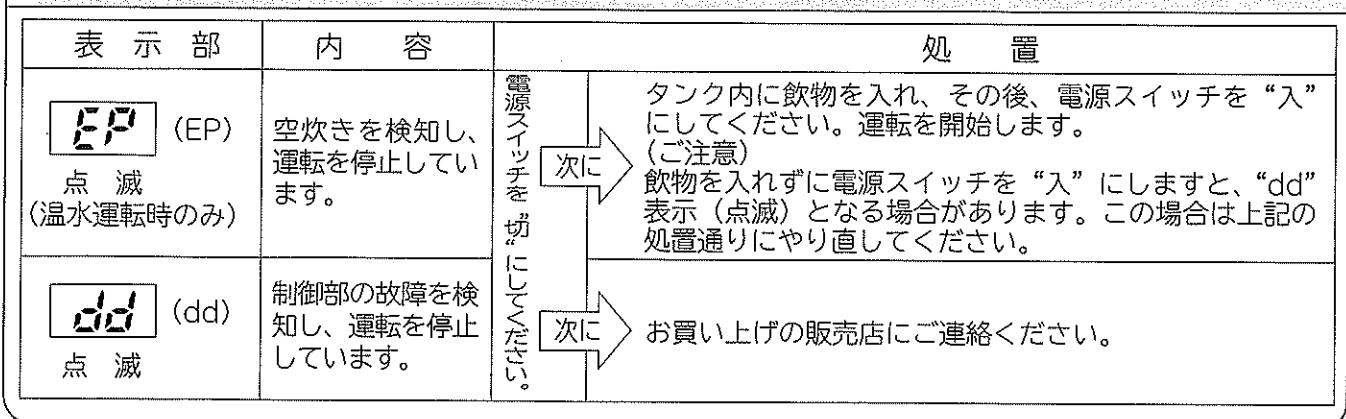 表 示 部
内 容
処 置
EP (EP)
点 滅
(温水運転時のみ)
空炊きを検知し、
運転を停止してい
ます。
電源スイッチを“切”にしてください。
次に
タンク内に飲物を入れ、その後、電源スイッチを“入”
にしてください。運転を開始します。
(ご注意)
飲物を入れずに電源スイッチを“入”にしますと、“dd”
表示(点滅)となる場合があります。この場合は上記の
処置通りにやり直してください。
dd (dd)
点 滅
制御部の故障を検
知し、運転を停止
しています。
次に
お買い上げの販売店にご連絡ください。